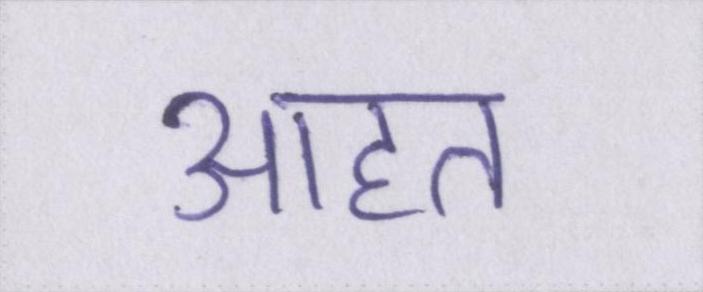 आहत